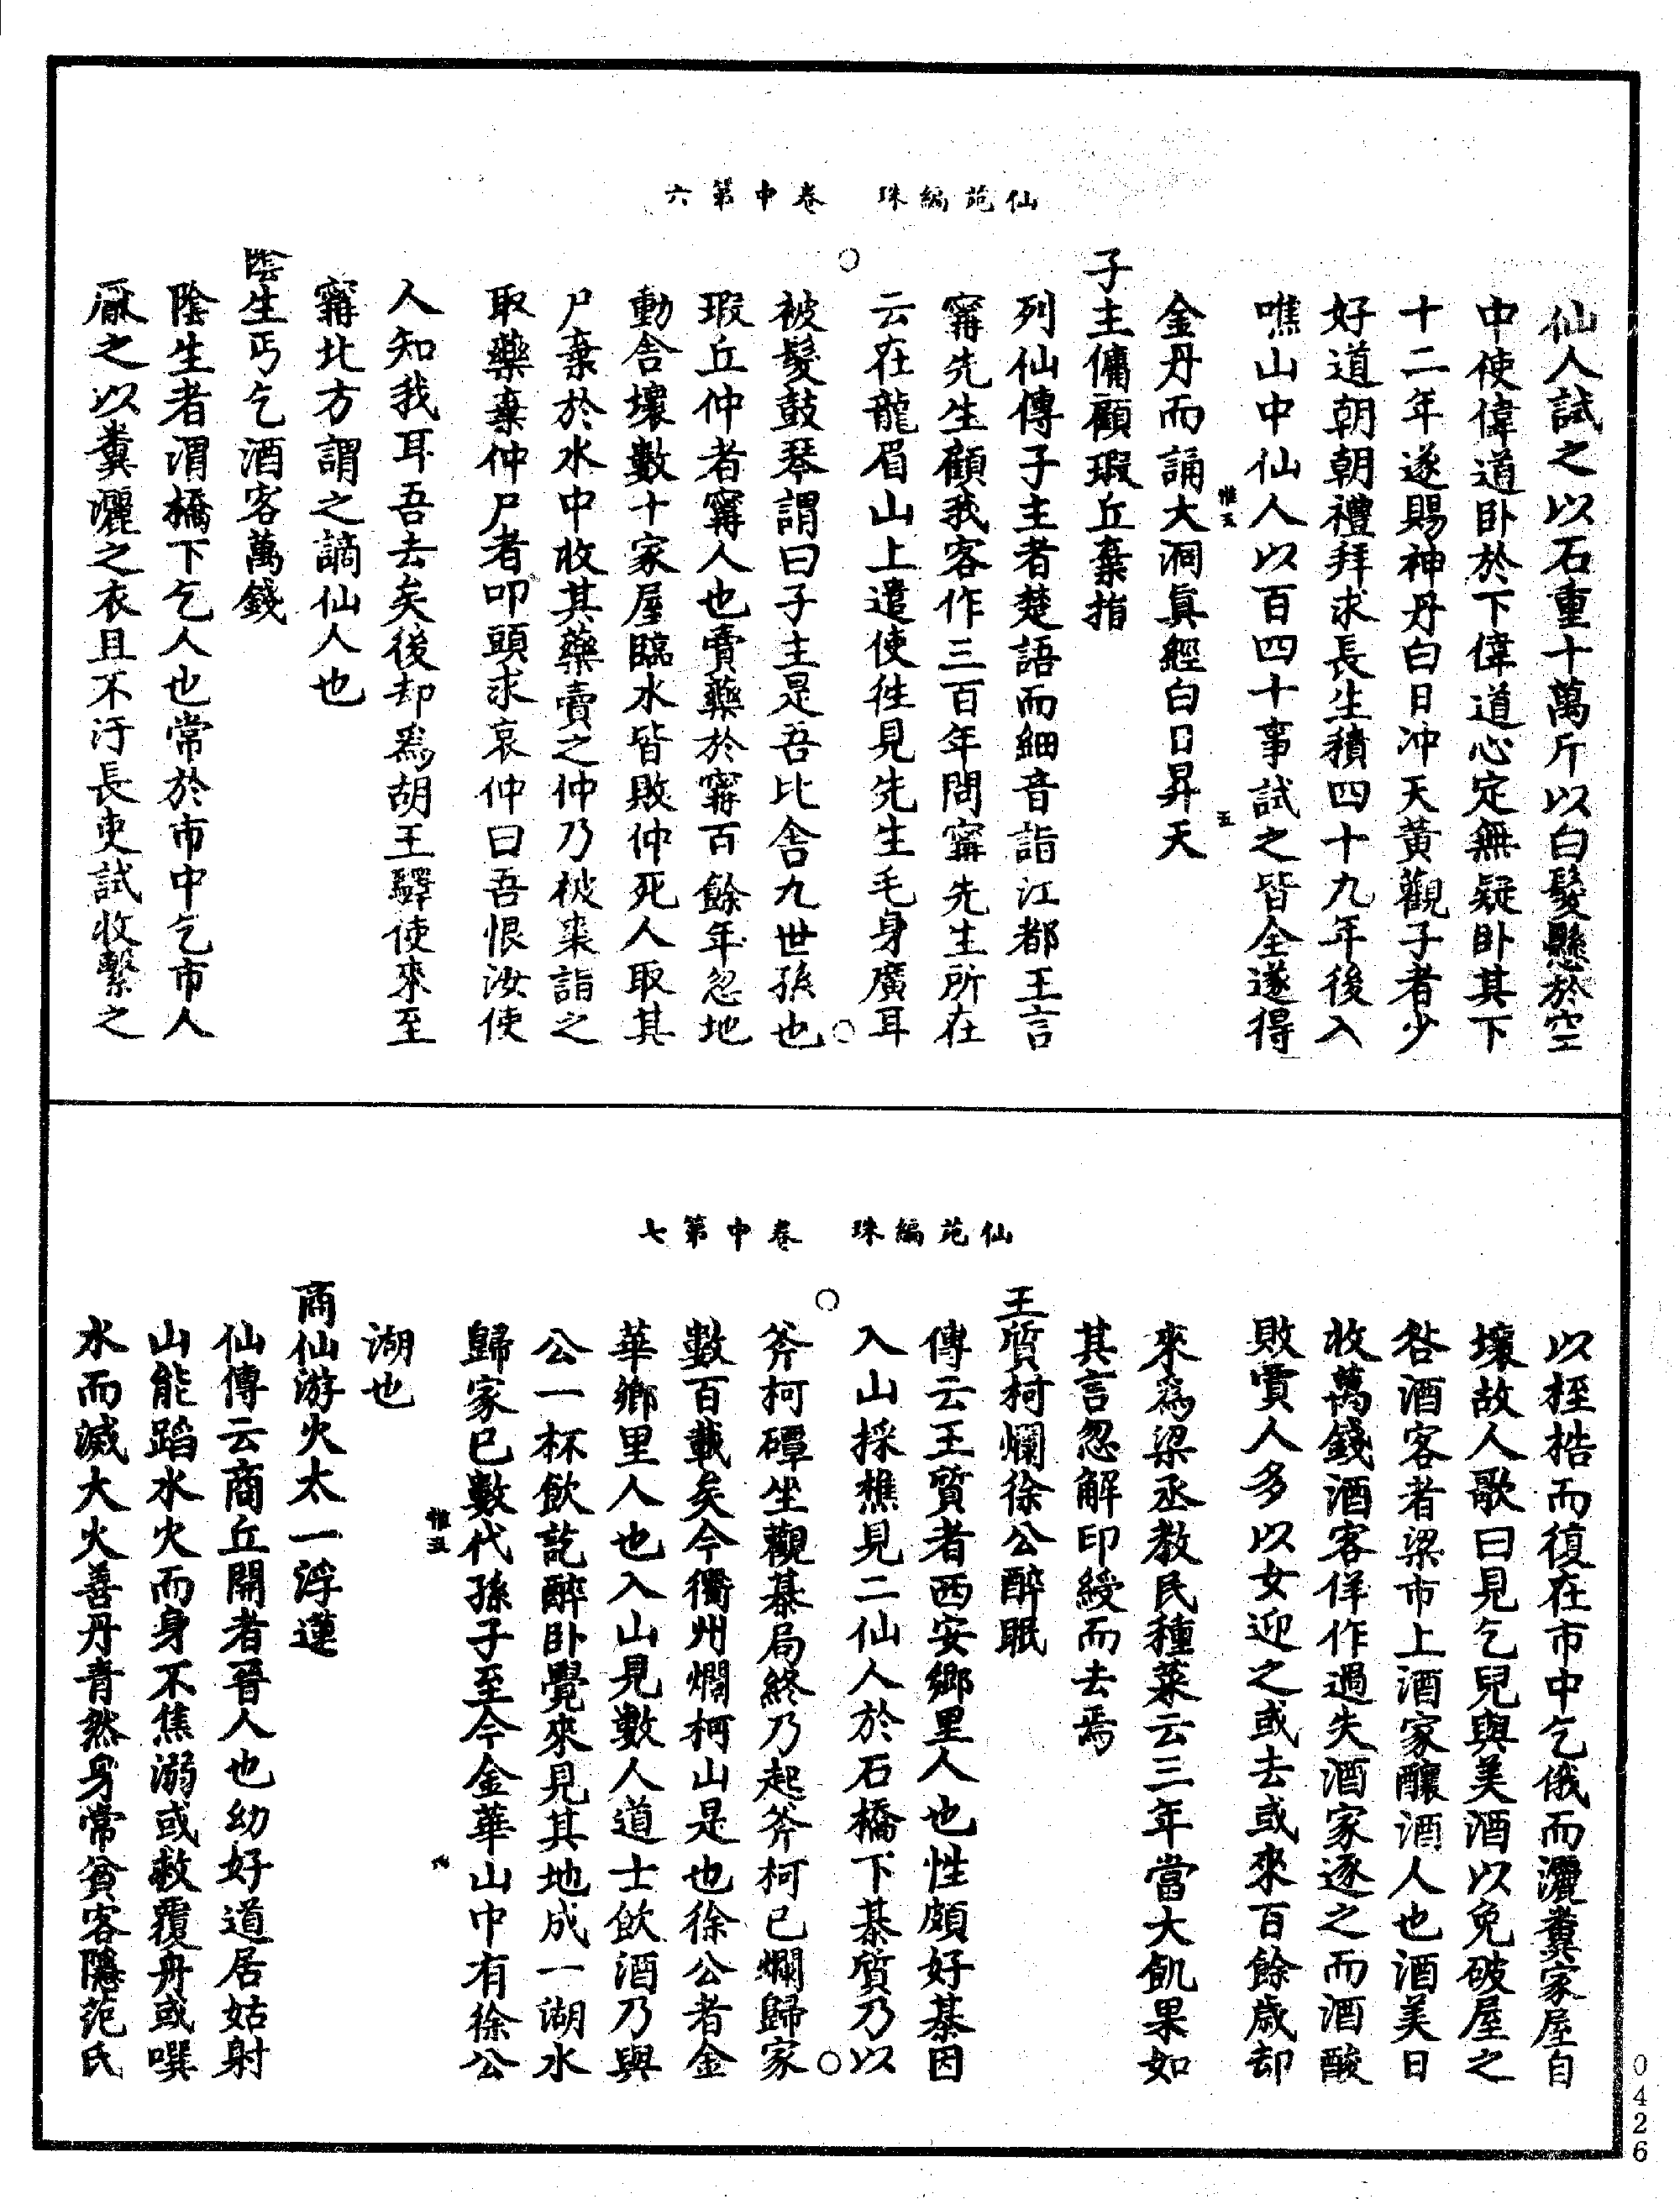 仙苑編珠　卷中第六
仙人試之以石重十萬斤以白髮懸於空
中使偉道卧於下偉道心定無疑卧其下
十二年遂賜神丹白日冲天黃觀子者少
好道朝朝禮拜求長生積四十九年後入
嶕山中仙人以百四十事試之皆全遂得
惟五　五
金丹而誦大洞眞經白日昇天
子主傭顧瑕丘棄指
列仙傳子主者楚語而細音詣江都王言
寗先生顧我客作三百年問寗先生所在
云在龍眉山上遣使徃見先生毛身廣耳
被髮鼓琴謂曰子主是吾比舍九世孫也
瑕丘仲者寗人也賣藥於寗百餘年忽地
動舍壞數十家屋臨水皆敗仲死人取其
尸棄於水中收其藥賣之仲乃被裘詣之
取藥棄仲尸者叩頭求哀仲曰吾恨汝使
人知我耳吾去矣後却爲胡王驛使來至
寗北方謂之謫仙人也
陰生丐乞酒客萬錢
陰生者渭橋下乞人也常於市中乞市人
厭之以糞灑之衣且不汙長吏試收繫之
仙苑編珠　卷中第七
以桎梏而復在市中乞俄而灑糞家屋自
壞故人歌曰見乞兒與美酒以免破屋之
咎酒客者梁市上酒家釀酒人也酒美日
收萬錢酒客佯作過失酒家逐之而酒酸
敗賣人多以女迎之或去或來百餘歲却
來爲梁丞教民種菜云三年當大飢果如
其言忽解印綬而去焉
王質柯爛徐公醉眠
傳云王質者西安鄉里人也性頗好棊因
入山採樵見二仙人於石橋下棊質乃以
斧柯磹坐觀棊局終乃起斧柯已爛歸家
數百載矣今衢州爛柯山是也徐公者金
華鄉里人也入山見數人道士飲酒乃與
公一杯飲訖醉卧覺來見其地成一湖水
歸家已數代孫子至今金華山中有徐公
惟五
湖也
商仙游火太一浮蓮
仙傳云商丘開者晉人也幼好道居姑射
山能蹈水火而身不焦溺或救覆舟或噀
水而滅大火善丹青然身常貧客隱范氏
0426